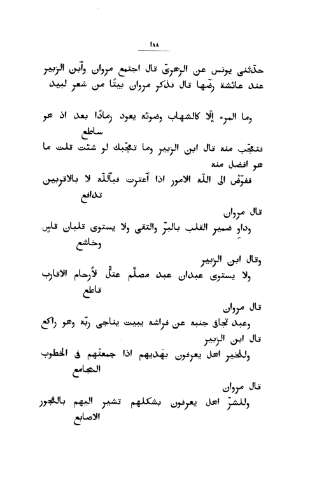 ١٨٨
حدّثنى يونس عن الزهرىّ قال اجتمع مروان وآبن الزبير
عند عائشة رضّها قال فذكر مروان بيتًا من شعر لبيد
وما المرء إلّا كالشهاب وضوئه يعود رمادًا بعد اذ هو
ساطع
فتعجّب منه قال ابن الزبير وما تعجّبك لو شئت قلت ما
هو افضل منه
ففوّض الى اللّه الامور اذا آعترت فبآللّه لا بالاقربين
تدافع
قال مروان
وداو ضمير القلب بالبرّ والتقى ولا يستوى قلبان قاسٍ
وخاشع
وقال ابن الزبير
ولا يستوى عبدان عبد مصلّم عتلّ لأرحام الاقارب
قاطع
قال مروان
وعبد تجافى جنبه عن فراشه يبيت يناجى ربّه وهو راكع
قال ابن الزبير
وللخير اهل يعرفون بهديهم اذا جمعتهم فى الخطوب
المجامع
قال مروان
وللشرّ اهل يعرفون بشكلهم تشير اليهم بالفجور
الاصابع